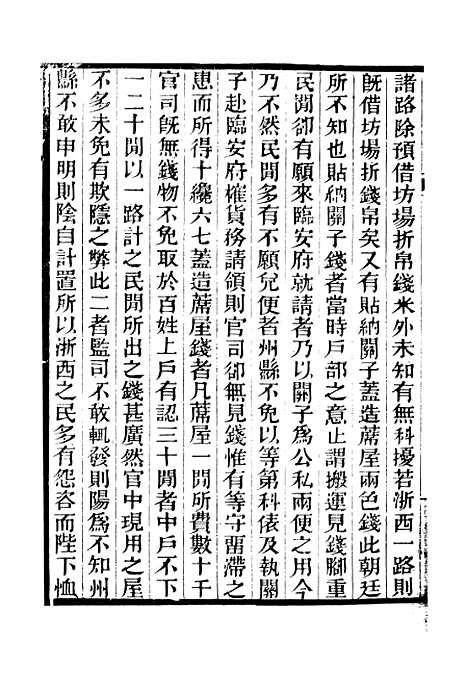 諸路除預借坊場折帛錢米外未知有無科擾若浙西一路則
旣借坊場折錢帛矣又有貼納關子蓋造蓆屋兩色錢此朝廷
所不知也貼納關子錢者當時戶部之意止謂搬運見錢腳重
民閒卻有願來臨安府就請者乃以關子為公私兩便之用今
乃不然民閒多有不願兌便者州縣不免以等第科俵及執關
子赴臨安府榷貨務請領則官司卻無見錢惟有等守畱滯之
患而所得十纔六七蓋造蓆屋錢者凡蓆屋一閒所費數十千
官司旣無錢物不免取於百姓上戶有認三十閒者中戶不下
一二十閒以一路計之民閒所出之錢甚廣然官中現用之屋
不多未免有欺隱之弊此二者監司不敢輒發則陽為不知州
縣不敢申明則陰自計置所以浙西之民多有怨咨而陛下恤